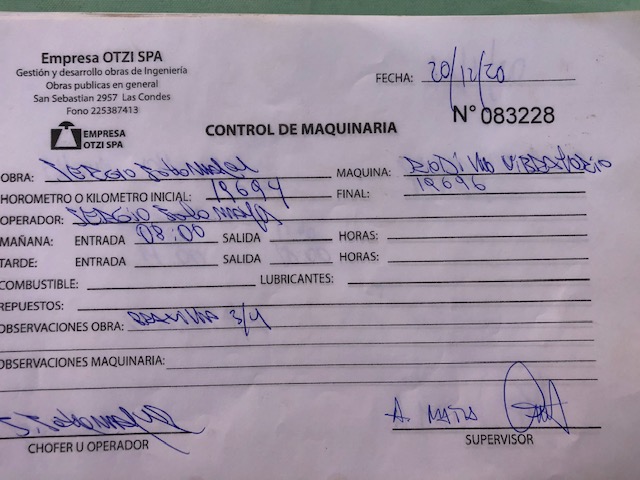 Empresa OTZI SPA
Gestión y desarrollo obras de Ingeniería
Obras publicas en general
San Sebastian 2957 Las Condes
Fono 225387413
FECHA: 20/12/20
EMPRESA
OTZI SPA
CONTROL DE MAQUINARIA
N° 083228
OBRA: MAQUINA: RODILLO
HOROMETRO O KILOMETRO INICIAL: 19694 FINAL: 19696
OPERADOR: SERGIO
MAÑANA: ENTRADA 08:00 SALIDA HORAS:
TARDE: ENTRADA SALIDA HORAS:
COMBUSTIBLE: LUBRICANTES:
REPUESTOS:
OBSERVACIONES OBRA: 3/4
OBSERVACIONES MAQUINARIA:
A. MATA
CHOFER U OPERADOR SUPERVISOR